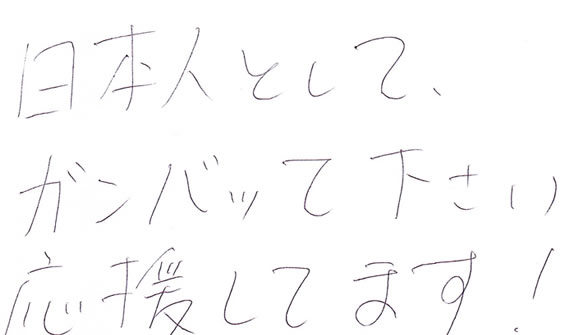 日本人として、
ガンバッて下さい
応援してます!